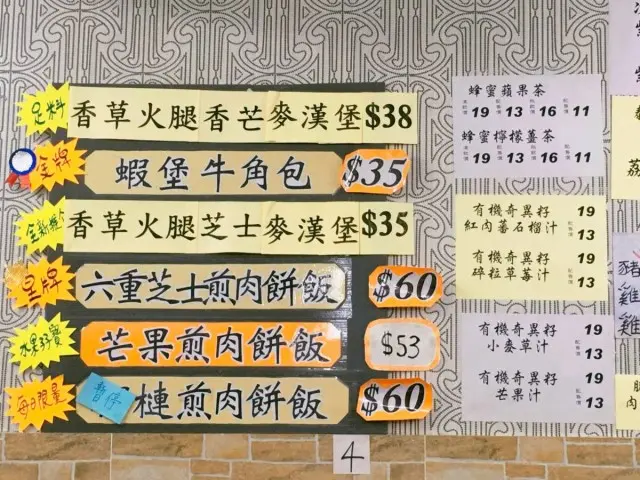 足料 香草火腿香芒麥漢堡 $38
金牌 蝦堡牛角包 $35
香草火腿芝士麥漢堡 $35
皇牌 六重芝士煎肉餅飯 $60
水果孖寶 芒果煎肉餅飯 $53
每日限量 暫停 槤煎肉餅飯 $60
4
蜂蜜蘋果茶
19 13 16 11
蜂蜜檸檬薑茶
19 13 16 11
有機奇異籽 19
紅肉蕃石榴汁 配餐價 13
有機奇異籽 19
碎粒草莓汁 配餐價 13
有機奇異籽 19
小麥草汁 配餐價 13
有機奇異籽 19
芒果汁 配餐價 13
雞
雞
肉